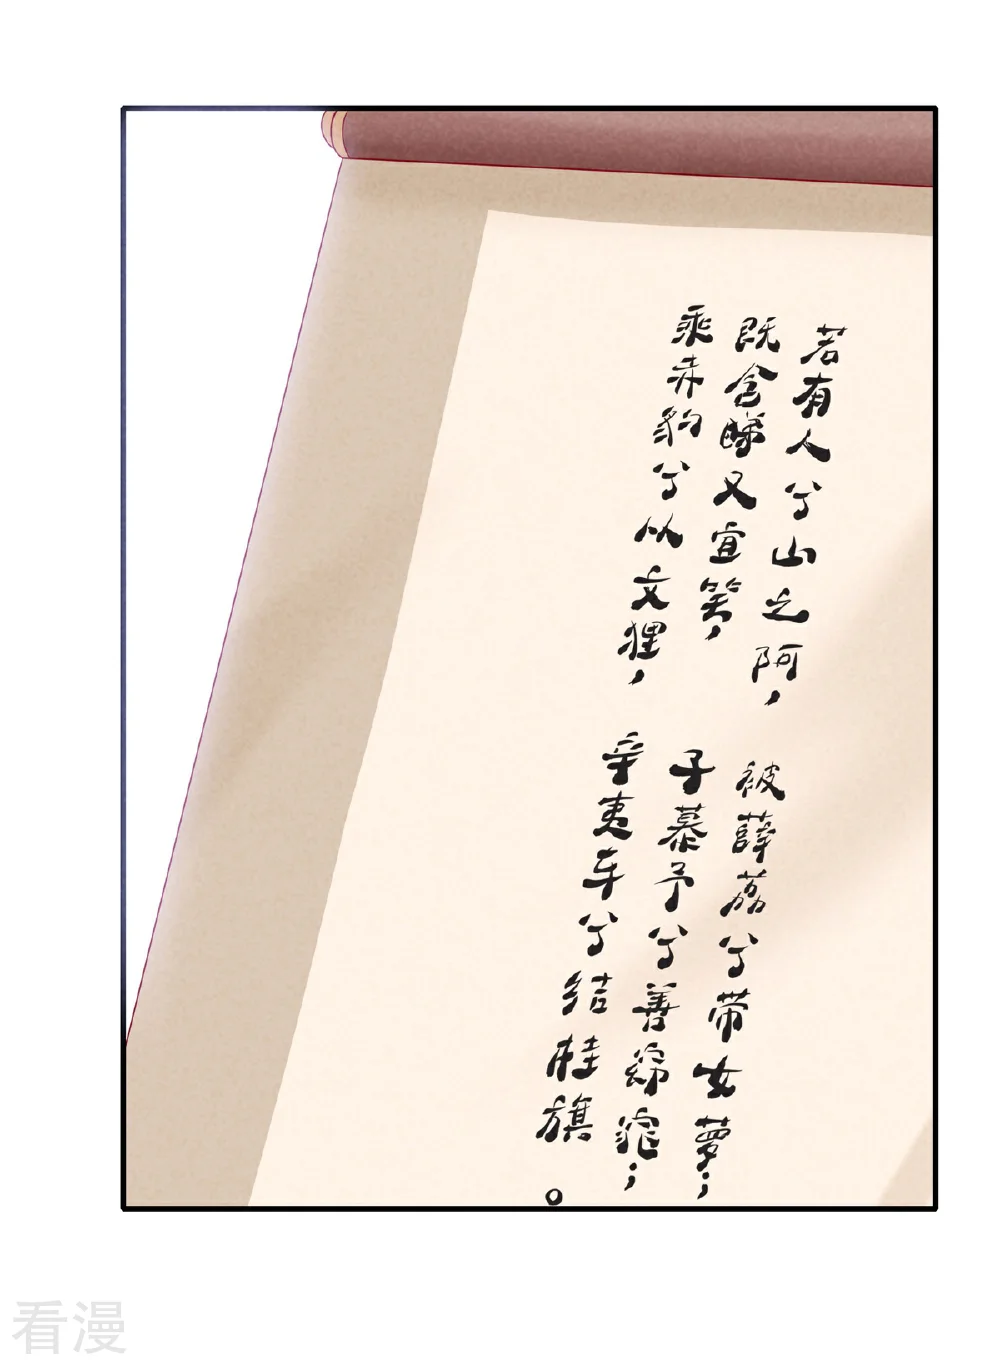 若有人兮山之阿，
被薜荔兮带女萝；
既含睇又宜笑，
子慕予兮善窈窕；
乘赤豹兮从文狸，
辛夷车兮结桂旗。
看漫